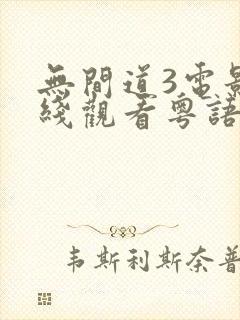 無間道3電影
綫觀看粵語
韦斯利斯奈普